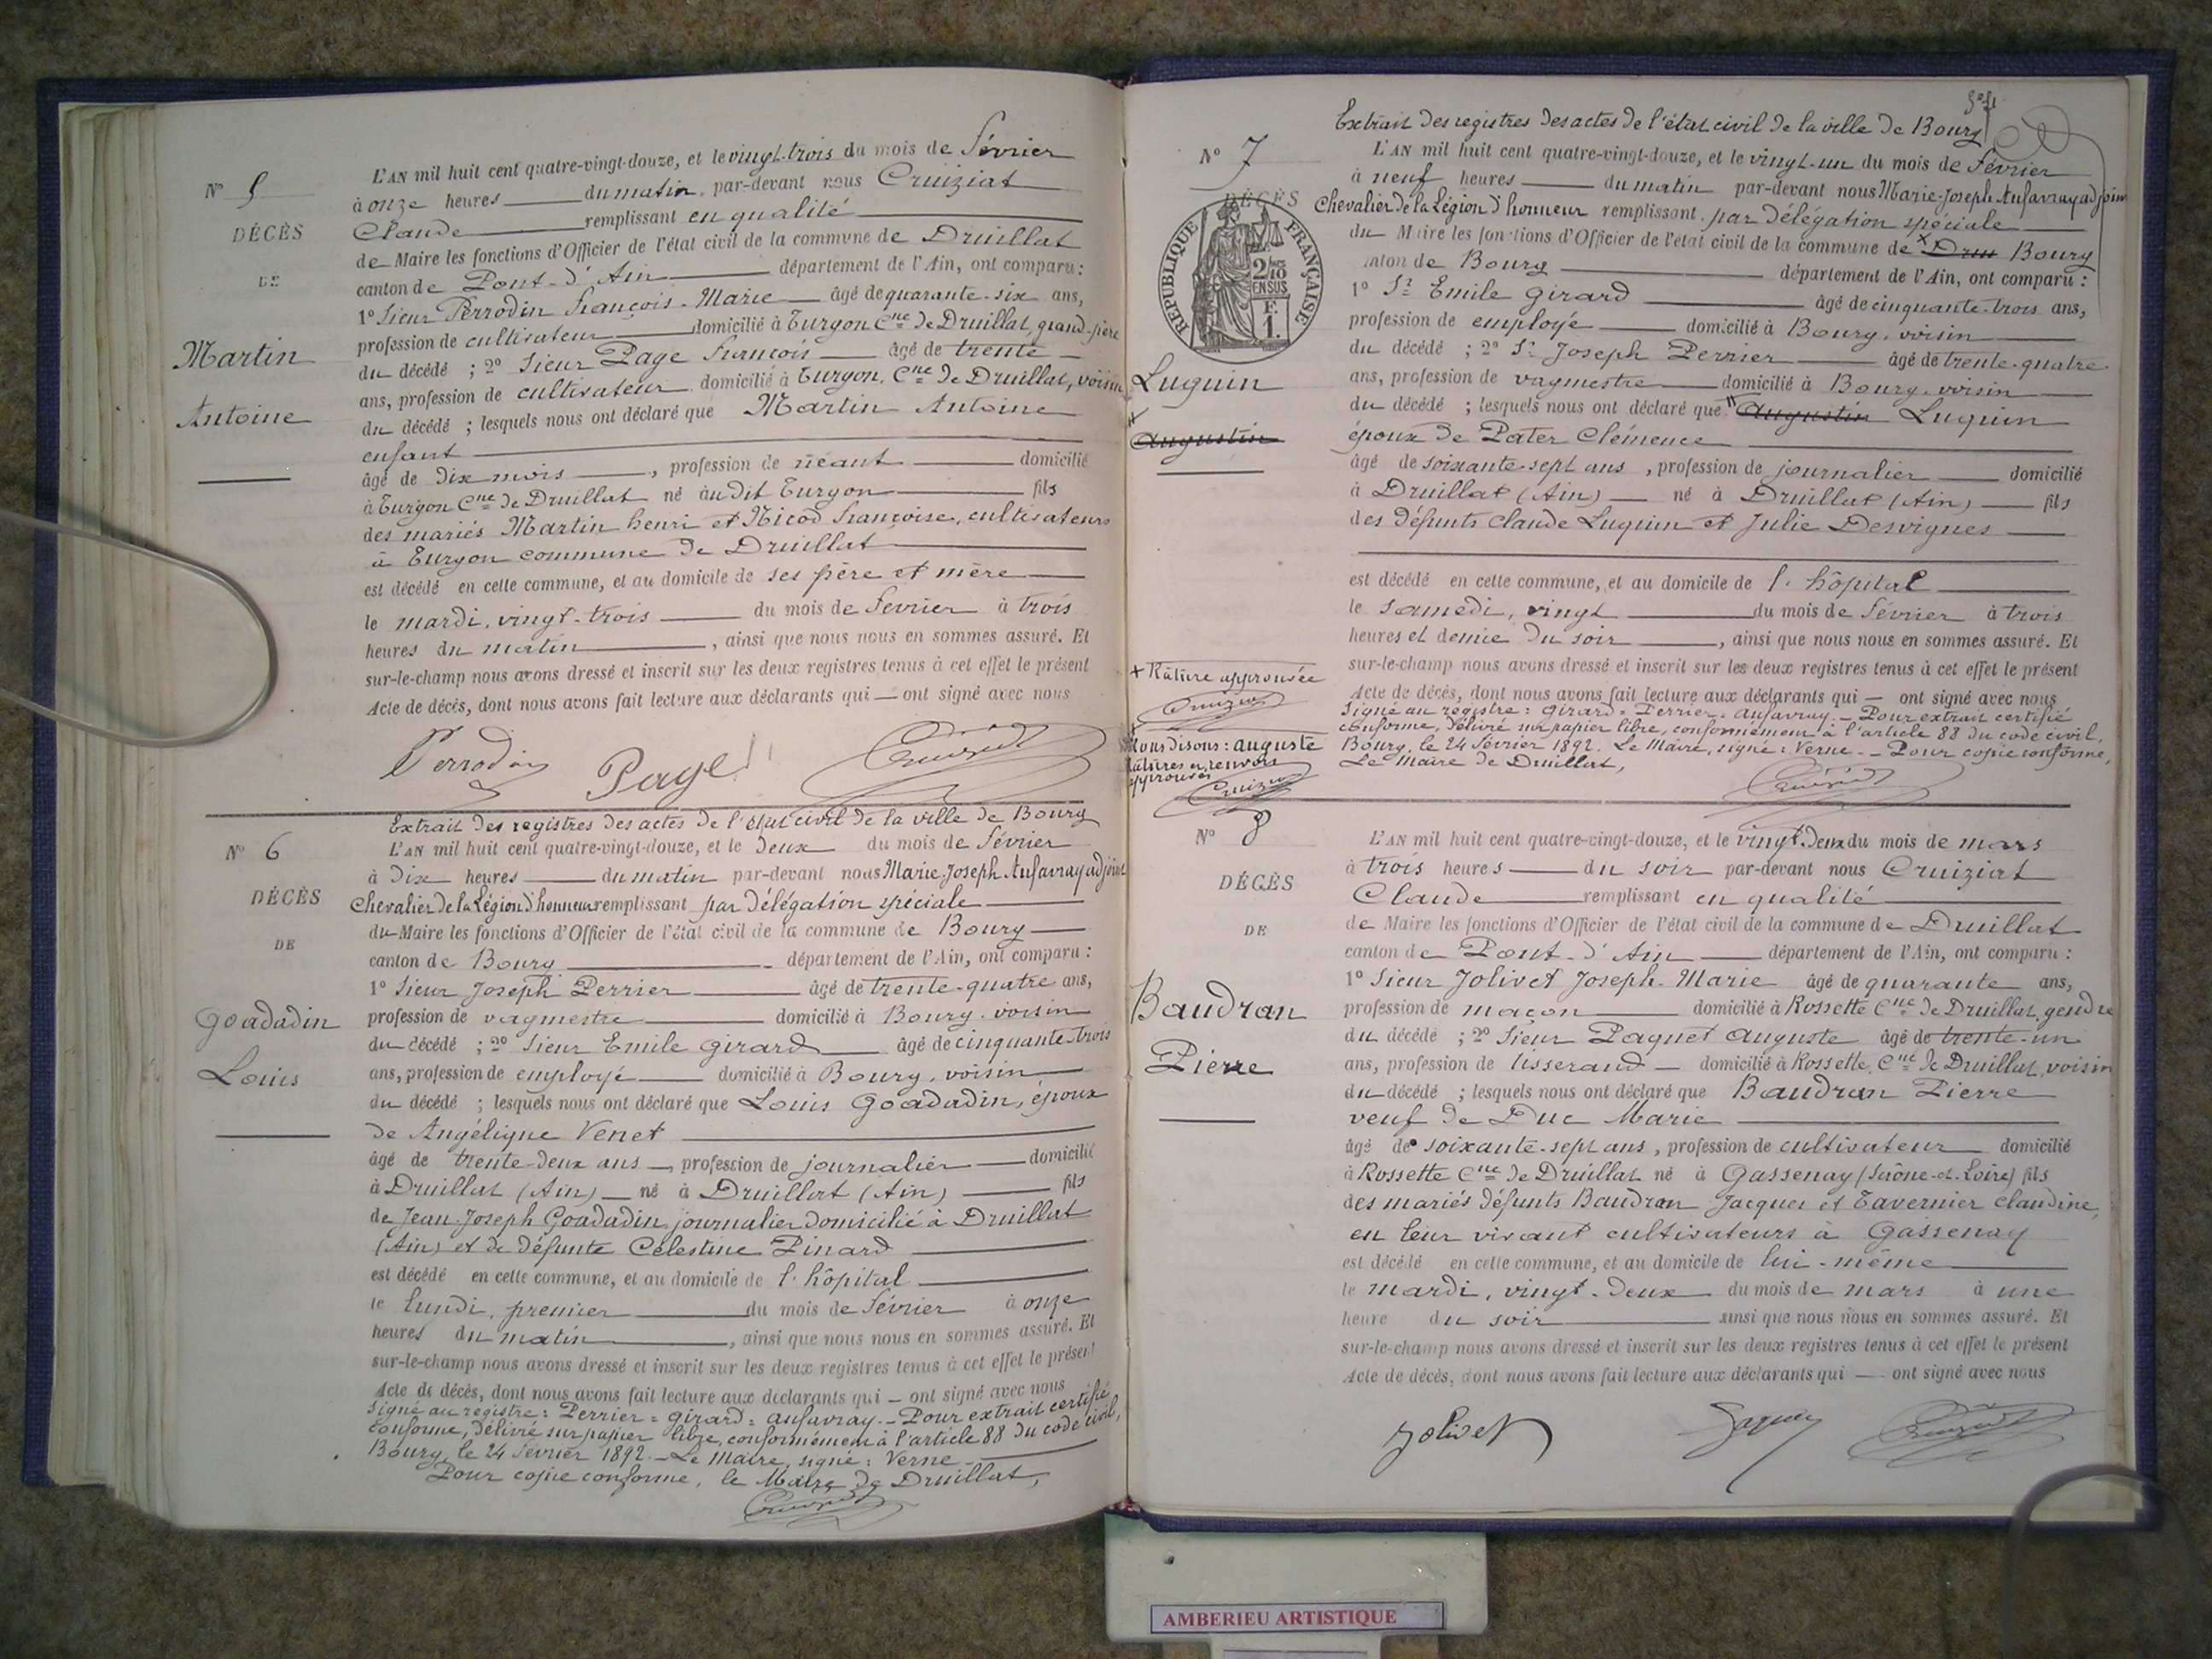 N° 5
DÉCÈS
DE
Martin
Antoine
L'AN mil huit cent quatre-vingt-douze, et le vingt-trois du mois de février
à onze heures du matin, par-devant nous Cruiziat
Claude remplissant en qualité
de Maire les fonctions d'Officier de l'état civil de la commune de Druillat
canton de Pont-d'Ain département de l'Ain, ont comparu :
1° Sieur Perrodin François-Marie âgé de quarante-six ans,
profession de cultivateur domicilié à Turgon Cne de Druillat, grand-père
du décédé ; 2° Sieur Page François âgé de trente
ans, profession de cultivateur domicilié à Turgon, Cne de Druillat, voisin
du décédé ; lesquels nous ont déclaré que Martin Antoine
enfant
âgé de dix mois, profession de néant domicilié
à Turgon Cne de Druillat né audit Turgon fils
des mariés Martin henri et Nicod françoise, cultivateurs
à Turgon commune de Druillat
est décédé en cette commune, et au domicile de ses père et mère
le mardi, vingt-trois du mois de février à trois
heures du matin, ainsi que nous nous en sommes assuré. Et
sur-le-champ nous avons dressé et inscrit sur les deux registres tenus à cet effet le présent
Acte de décès, dont nous avons fait lecture aux déclarants qui — ont signé avec nous
Perrodin Page Cruiziat
Extrait des registres des actes de l'état civil de la ville de Bourg
N° 6
DÉCÈS
DE
Goadadin
Louis
L'AN mil huit cent quatre-vingt-douze, et le deux du mois de février
à dix heures du matin par-devant nous Marie-Joseph Aufavray adjoint
Chevalier de la Légion d'honneur remplissant par délégation spéciale
du Maire les fonctions d'Officier de l'état civil de la commune de Bourg
canton de Bourg département de l'Ain, ont comparu :
1° Sieur Joseph Perrier âgé de trente-quatre ans,
profession de vagmestre domicilié à Bourg, voisin
du décédé ; 2° Sieur Emile Girard âgé de cinquante-trois
ans, profession de employé domicilié à Bourg, voisin
du décédé ; lesquels nous ont déclaré que Louis Goadadin, époux
de Angélique Venet
âgé de trente-deux ans, profession de journalier domicilié
à Druillat (Ain) né à Druillat (Ain) fils
de Jean-Joseph Goadadin, journalier domicilié à Druillat
(Ain) et de défunte Célestine Pinard
est décédé en cette commune, et au domicile de l'hôpital
le lundi, premier du mois de février à onze
heures du matin, ainsi que nous nous en sommes assuré. Et
sur-le-champ nous avons dressé et inscrit sur les deux registres tenus à cet effet le présent
Acte de décès, dont nous avons fait lecture aux déclarants qui — ont signé avec nous
Signé au registre : Perrier = Girard = Aufavray. — Pour extrait certifié
conforme, délivré sur papier libre, conformément à l'article 88 du code civil,
Bourg, le 24 février 1892. — Le Maire, signé : Verne —
Pour copie conforme, le Maire de Druillat,
Cruiziat
Extrait des registres des actes de l'état civil de la ville de Bourg
N° 7
DÉCÈS
RÉPUBLIQUE FRANÇAISE
2/10 EN SUS
F.
1.
Luquin
Augustin
L'AN mil huit cent quatre-vingt-douze, et le vingt-un du mois de février
à neuf heures du matin par-devant nous Marie-Joseph Aufavray adjoint
Chevalier de la Légion d'honneur remplissant par délégation spéciale
du Maire les fonctions d'Officier de l'état civil de la commune de Dru Bourg
canton de Bourg département de l'Ain, ont comparu :
1° Sr Emile Girard âgé de cinquante-trois ans,
profession de employé domicilié à Bourg, voisin
du décédé ; 2° Sr Joseph Perrier âgé de trente-quatre
ans, profession de vagmestre domicilié à Bourg, voisin
du décédé ; lesquels nous ont déclaré que Augustin Luquin
époux de Pater Clémence
âgé de soixante-sept ans, profession de journalier domicilié
à Druillat (Ain) né à Druillat (Ain) fils
des défunts Claude Luquin et Julie Desvignes
est décédé en cette commune, et au domicile de l'hôpital
le samedi, vingt du mois de février à trois
heures et demie du soir, ainsi que nous nous en sommes assuré. Et
sur-le-champ nous avons dressé et inscrit sur les deux registres tenus à cet effet le présent
Acte de décès, dont nous avons fait lecture aux déclarants qui — ont signé avec nous
Signé au registre : Girard = Perrier = Aufavray. — Pour extrait certifié
conforme, délivré sur papier libre, conformément à l'article 88 du code civil.
Bourg, le 24 février 1892. Le Maire, signé : Verne — Pour copie conforme,
Le Maire de Druillat,
Cruiziat
+ Râture approuvée
Cruiziat
Nous disons : auguste
Râtures et renvois
approuvés
Cruiziat
N° 8
DÉCÈS
DE
Baudran
Pierre
L'AN mil huit cent quatre-vingt-douze, et le vingt-deux du mois de mars
à trois heures du soir par-devant nous Cruiziat
Claude remplissant en qualité
de Maire les fonctions d'Officier de l'état civil de la commune de Druillat
canton de Pont-d'Ain département de l'Ain, ont comparu :
1° Sieur Jolivet Joseph-Marie âgé de quarante ans,
profession de maçon domicilié à Rossette Cne de Druillat, gendre
du décédé ; 2° Sieur Paquet Auguste âgé de trente-un
ans, profession de tisserand domicilié à Rossette, Cne de Druillat, voisin
du décédé ; lesquels nous ont déclaré que Baudran Pierre
veuf de Duc Marie
âgé de soixante-sept ans, profession de cultivateur domicilié
à Rossette Cne de Druillat né à Gassenay (Saône-et-Loire) fils
des mariés défunts Baudran Jacques et Tavernier Claudine,
en leur vivant cultivateurs à Gassenay
est décédé en cette commune, et au domicile de lui-même
le mardi, vingt-deux du mois de mars à une
heure du soir ainsi que nous nous en sommes assuré. Et
sur-le-champ nous avons dressé et inscrit sur les deux registres tenus à cet effet le présent
Acte de décès, dont nous avons fait lecture aux déclarants qui — ont signé avec nous
Jolivet Paquet Cruiziat
AMBERIEU ARTISTIQUE